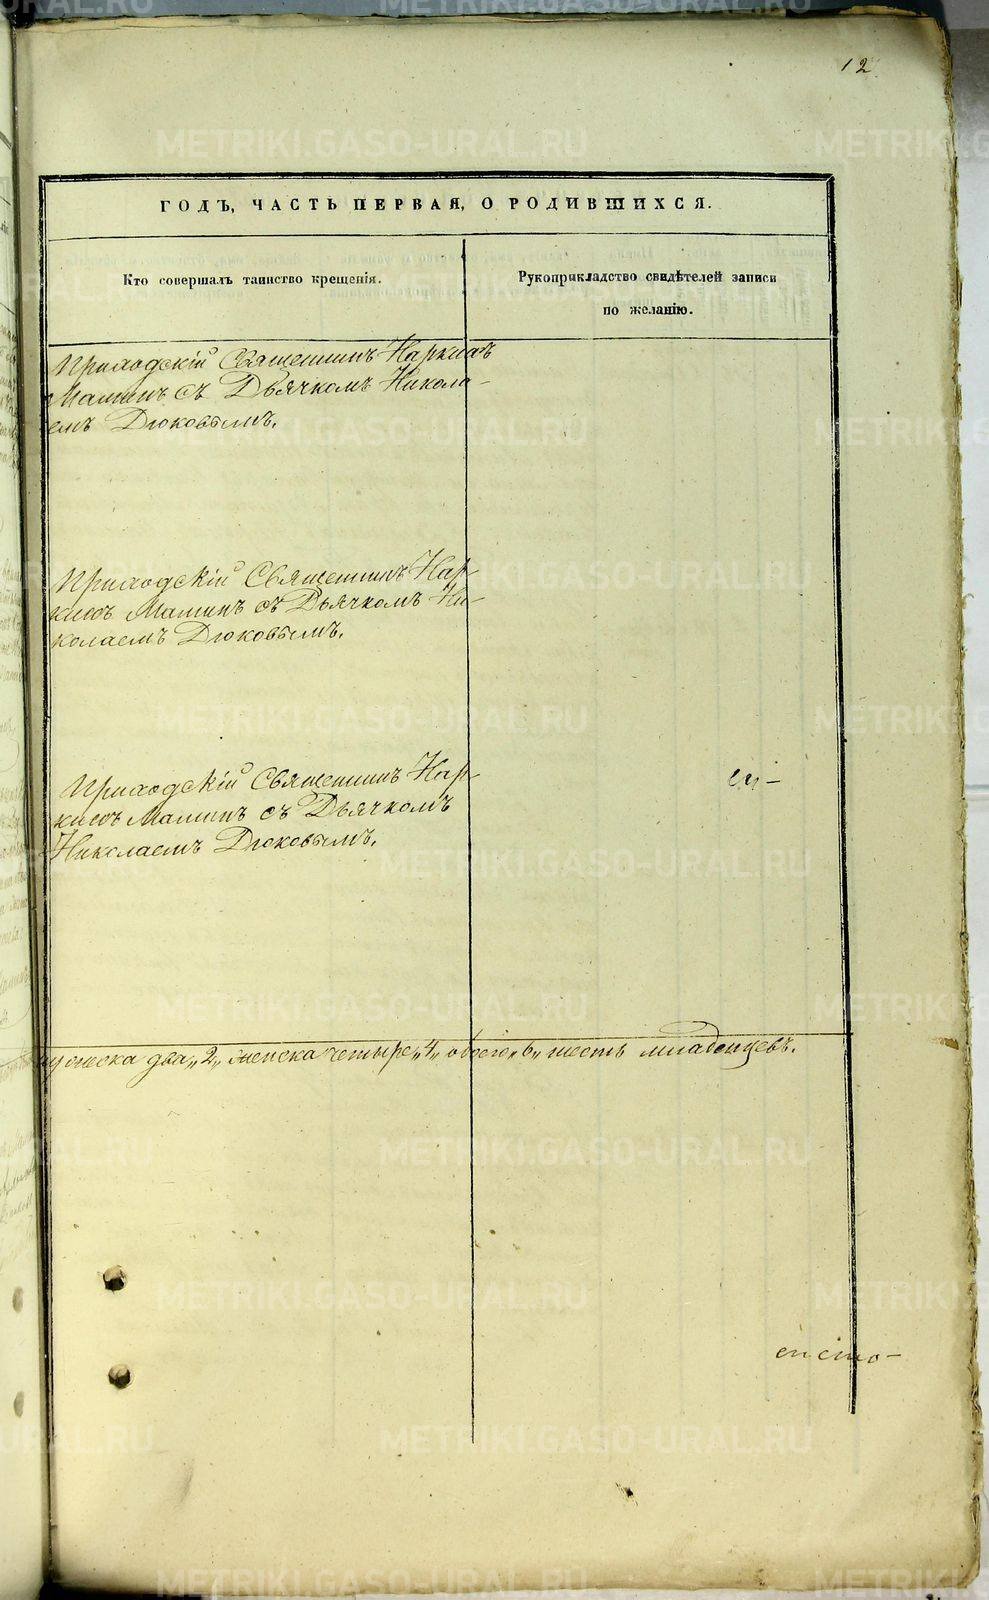 12
ГОДЪ, ЧАСТЬ ПЕРВАЯ, О РОДИВШИХСЯ.
Кто совершалъ таинство крещенія.
Рукоприкладство свидѣтелей записи
по желанію.
Приходскій Священникъ Наркисъ
Мамин съ Дьячкомъ Никола-
емъ Дюковымъ.
Приходскій Священникъ Нар-
кисъ Маминъ съ Дьячкомъ Ни-
колаемъ Дюковымъ.
Приходскій Священникъ Нар-
кисъ Маминъ съ Дьячкомъ
Николаемъ Дюковымъ.
мужеска два „2„ женска четыре „4„ обоего „6„ шесть младенцевъ.
METRIKI.GASO-URAL.RU